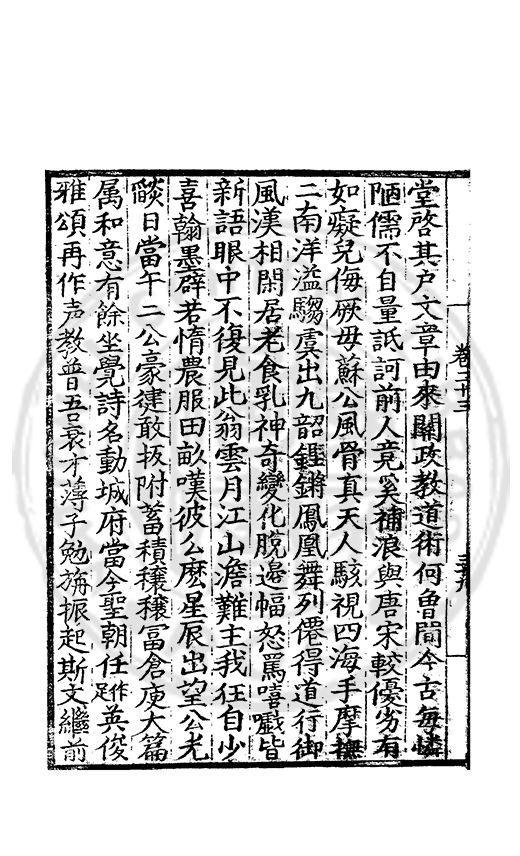 堂啓其户文章由來關政教道術何曽間今古每憐
陋儒不自量詆訶前人竟奚補浪與唐宋較優劣有
如癡兒侮厥毋蘇公風骨真天人駭視四海手摩撫
二南洋溢騶虞出九韶鏗鏘鳳凰舞列僊得道行御
風漢相閑居老食乳神奇變化脫邊幅怒罵嘻戲皆
新語眼中不復見此翁雲月江山澹難主我狂自少
喜翰墨辟若惰農服田畝嘆彼么麽星辰出望公光
燄日當午二公豪健敢扳附蓄積穰穰冨倉庾大篇
属和意有餘坐覺詩名動城府當今聖朝任作英俊
雅頌再作声教普吾衰才薄子勉旃振起斯文繼前
卷二十三